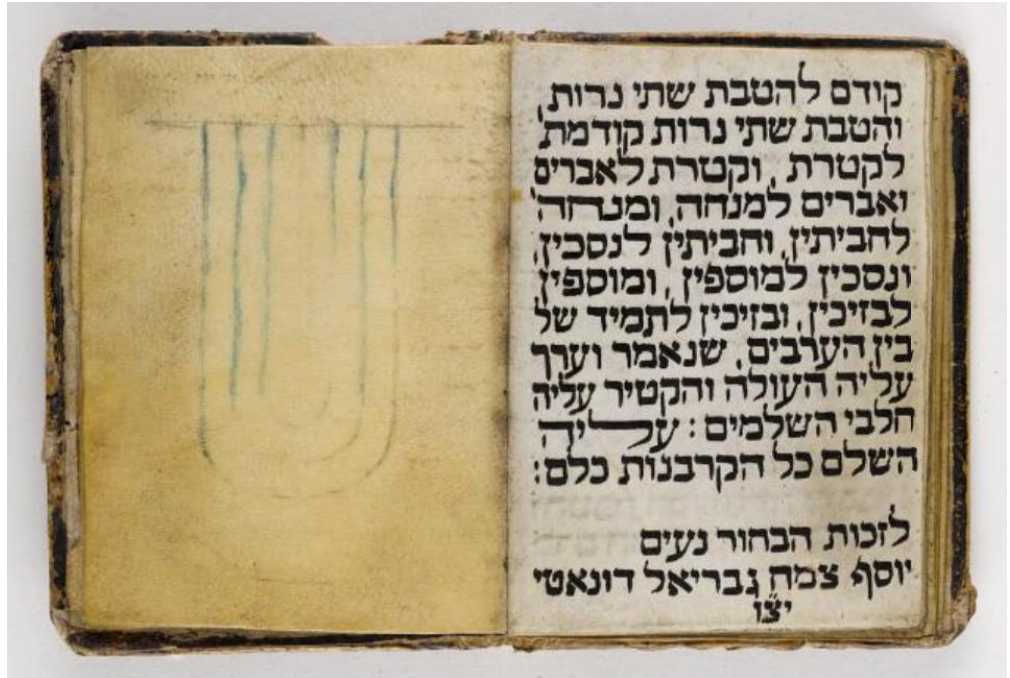 קודם להטבת שתי נרות,
והטבת שתי נרות קודמת
לקטרת, וקטרת לאברים
ואברים למנחה, ומנחה
לחביתין, וחביתין לנסכין,
ונסכין למוספין, ומוספין
לבזיכין, ובזיכין לתמיד של
בין הערבים, שנאמר וערך
עליה העולה והקטיר עליה
חלבי השלמים: עליה
השלם כל הקרבנות כלם:
לזכות הבחור נעים
יוסף צמח גבריאל דונאטי
יצ"ו